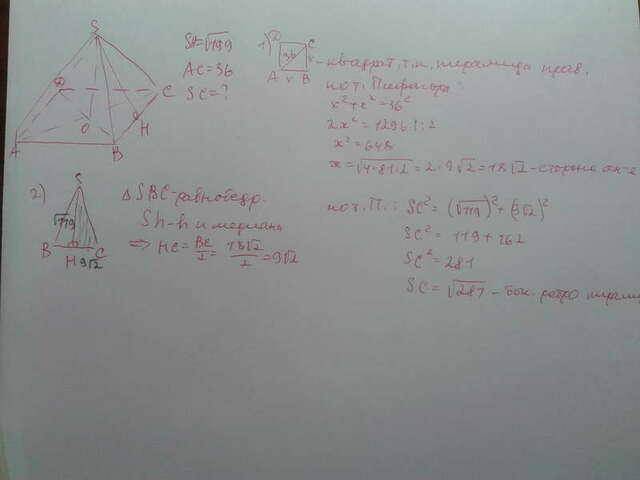 S
A
B
C
O
H
SH=√119
AC=36
SC=?
1)
36
C
x
A x B
- квадрат, т.к. пирамида прав.
по т. Пифагора:
x²+x²=36²
2x²=1296 |:2
x²=648
x=√4·81·2=2·9√2=18√2-сторона осн-я
2)
S
√119
B
C
H 9√2
△SBC-равнобедр.
Sh-h и медиана
⇒ HC=BC/2=18√2/2=9√2
по т. П.: SC²=(√119)²+(9√2)²
SC²=119+162
SC²=281
SC=√281 - бок. ребро